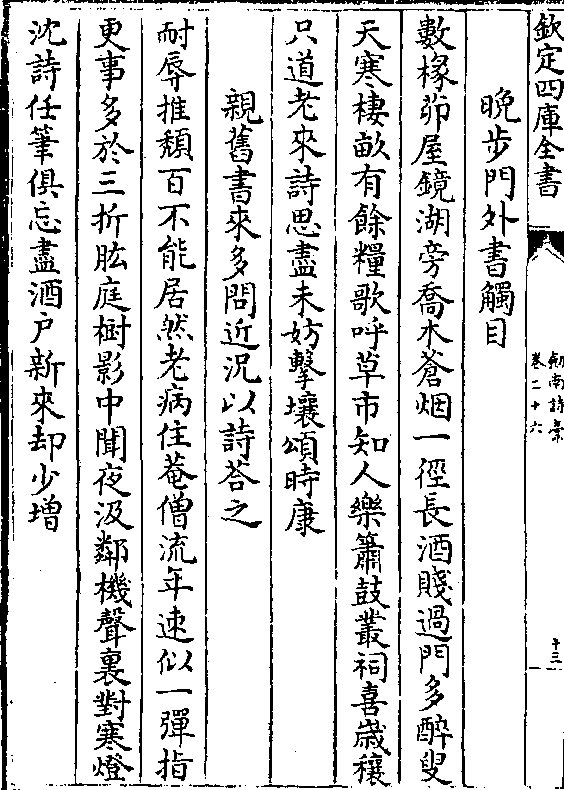 欽定四庫全書
劒南詩槀
卷二十六
十三
晩步門外書觸目
數椽茆屋鏡湖旁喬木蒼烟一徑長酒賤過門多醉叟
天寒棲畝有餘糧歌呼草市知人樂簫鼓叢祠喜歲穰
只道老來詩思盡未妨擊壤頌時康
親舊書來多問近況以詩荅之
耐辱推頽百不能居然老病住菴僧流年速似一彈指
更事多於三折肱庭樹影中聞夜汲鄰機聲裏對寒燈
沈詩任筆俱忘盡酒户新來却少增